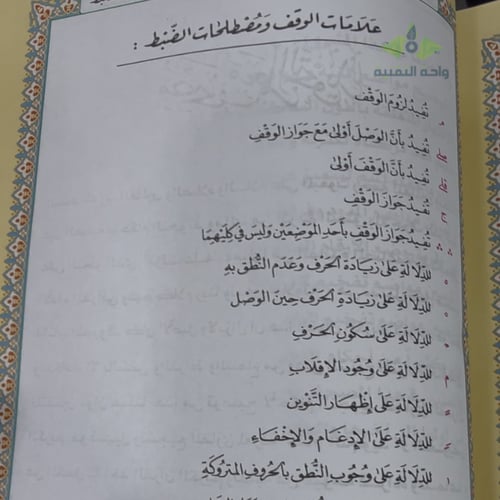 عَلَامَات الوَقْف وَمُصْطَلَحَات الضَّبْط :
واحه اليمنيه
م تُفِيدُ لُزُومَ الوَقْفِ
صلے تُفِيدُ بِأَنَّ الوَصْلَ أَوْلَىٰ مَعَ جَوَازِ الوَقْفِ
قلے تُفِيدُ بِأَنَّ الوَقْفَ أَوْلَىٰ
ج تُفِيدُ جَوَازَ الوَقْفِ
تُفِيدُ جَوَازَ الوَقْفِ بِأَحَدِ المَوْضِعَيْنِ وَلَيْسَ فِي كِلَيْهِمَا
للدِّلَالَةِ عَلَىٰ زِيَادَةِ الحَرْفِ وَعَدَمِ النُّطْقِ بِهِ
للدِّلَالَةِ عَلَىٰ زِيَادَةِ الحَرْفِ حِينَ الوَصْلِ
للدِّلَالَةِ عَلَىٰ سُكُونِ الحَرْفِ
م للدِّلَالَةِ عَلَىٰ وُجُودِ الإِقْلَابِ
للدِّلَالَةِ عَلَىٰ إِظْهَارِ التَّنْوِينِ
للدِّلَالَةِ عَلَىٰ الإِدْغَامِ وَالإِخْفَاءِ
للدِّلَالَةِ عَلَىٰ وُجُوبِ النُّطْقِ بِالحُرُوفِ المَتْرُوكَةِ